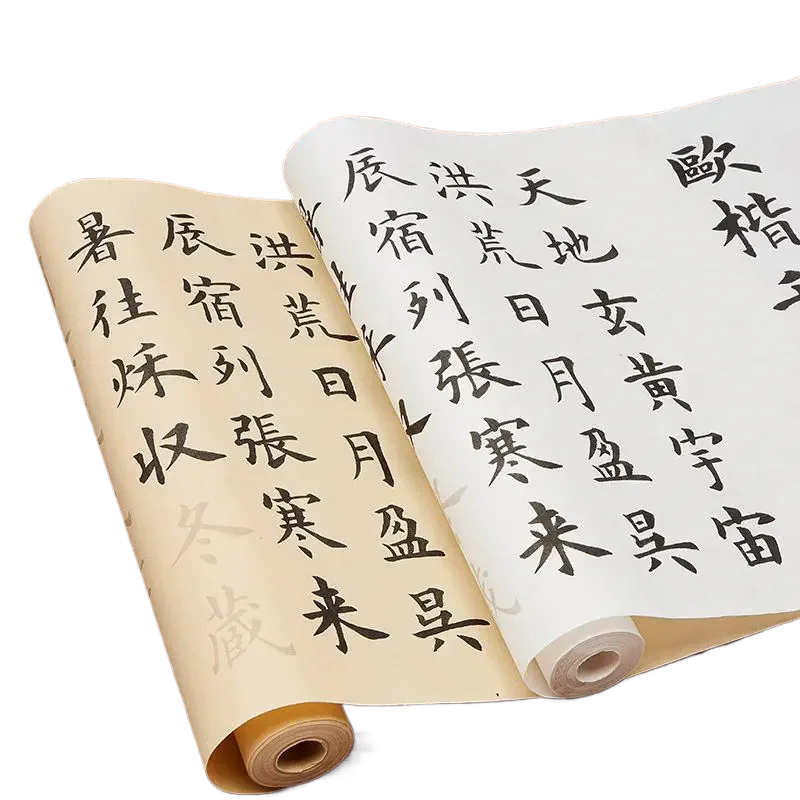 歐楷
天地玄黄宇宙
洪荒日月盈昃
辰宿列張寒来
洪荒日月盈昃
辰宿列張寒来
暑往秌収冬藏